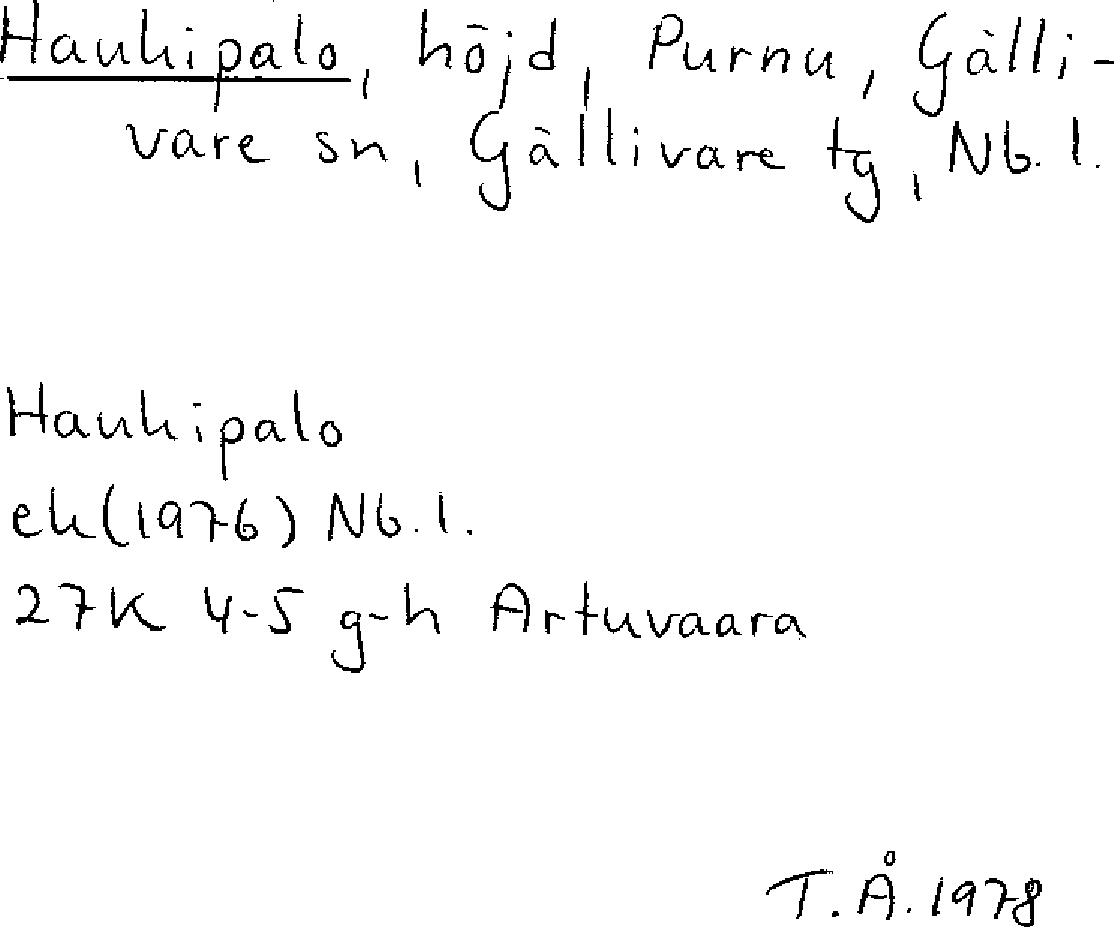 Haukipalo, höjd, Purnu, Gälli-
vare sn, Gällivare tg, Nb. l.
Haukipalo
ek(1976) Nb. l.
27K 4-5 g-h Artuvaara
T.Å. 1978